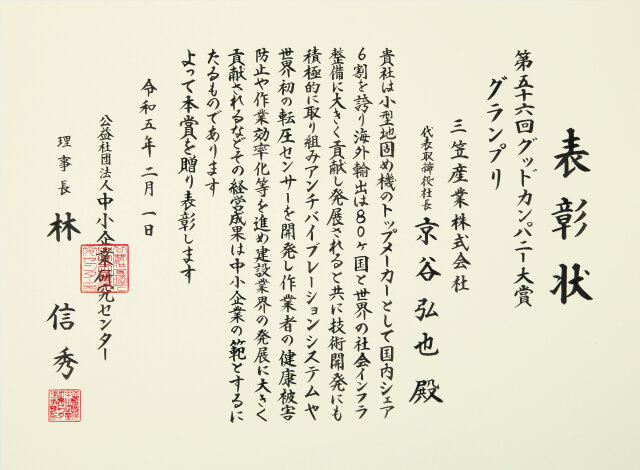 表彰状
第五十六回グッドカンパニー大賞
グランプリ
三笠産業株式会社
代表取締役社長 京谷弘也殿
貴社は小型地固め機のトップメーカーとして国内シェア
6割を誇り海外輸出は80ヶ国と世界の社会インフラ
整備に大きく貢献し発展されると共に技術開発にも
積極的に取り組みアンチバイブレーションシステムや
世界初の転圧センサーを開発し作業者の健康被害
防止や作業効率化等を進め建設業界の発展に大きく
貢献されるなどその経営成果は中小企業の範とするに
たるものであります
よって本賞を贈り表彰します
令和五年二月一日
公益社団法人中小企業研究センター
理事長 林信秀